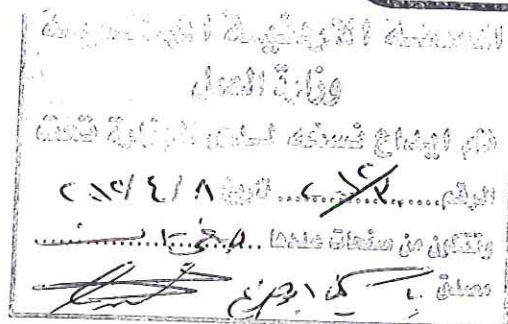 المملكة الأردنية الهاشمية
وزارة العدل
تم ايداع نسخه لدى الوزارة تحت
الرقم ............ تاريخ ٢٠١٩/٤/٨
وتتكون من صفحات عددها
مصدق